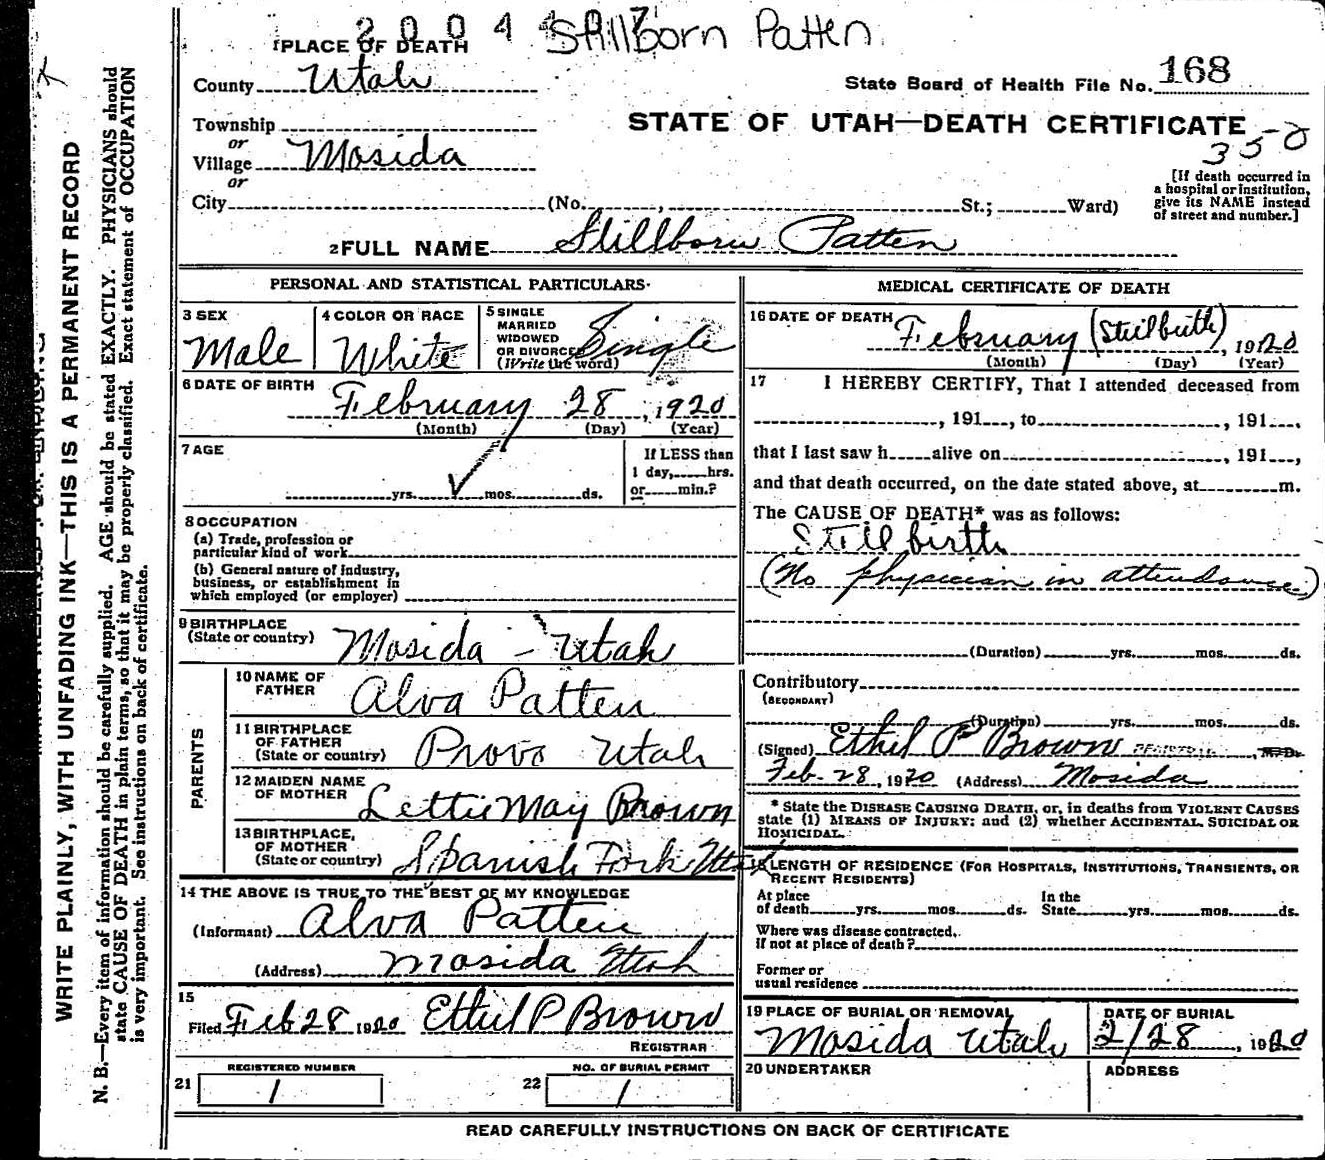 2004
Stillborn Patten
1 PLACE OF DEATH
County Utah
State Board of Health File No. 168
Township
or
Village Mosida
or
City (No. , St.; Ward)
STATE OF UTAH—DEATH CERTIFICATE
[If death occurred in
a hospital or institution,
give its NAME instead
of street and number.]
2 FULL NAME Stillborn Patten
PERSONAL AND STATISTICAL PARTICULARS
3 SEX
Male
4 COLOR OR RACE
White
5 SINGLE
MARRIED
WIDOWED
OR DIVORCED
(Write the word)
Single
6 DATE OF BIRTH
February 28, 1920
(Month) (Day) (Year)
7 AGE
yrs. mos. ds.
If LESS than
1 day, hrs.
or min.?
8 OCCUPATION
(a) Trade, profession or
particular kind of work
(b) General nature of industry,
business, or establishment in
which employed (or employer)
9 BIRTHPLACE
(State or country) Mosida - Utah
PARENTS
10 NAME OF
FATHER Alva Patten
11 BIRTHPLACE
OF FATHER
(State or country) Provo Utah
12 MAIDEN NAME
OF MOTHER Lettie May Brown
13 BIRTHPLACE,
OF MOTHER
(State or country) Spanish Fork Utah
14 THE ABOVE IS TRUE TO THE BEST OF MY KNOWLEDGE
(Informant) Alva Patten
(Address) Mosida Utah
15
Filed Feb 28 1920 Ethel P Brown
REGISTRAR
REGISTERED NUMBER
21 1
NO. OF BURIAL PERMIT
22 1
MEDICAL CERTIFICATE OF DEATH
16 DATE OF DEATH
February (Stillbirth), 1920
(Month) (Day) (Year)
17 I HEREBY CERTIFY, That I attended deceased from
, 191 , to , 191 ,
that I last saw h alive on , 191 ,
and that death occurred, on the date stated above, at m.
The CAUSE OF DEATH* was as follows:
Stillbirth
(No physician in attendance)
(Duration) yrs. mos. ds.
Contributory
(SECONDARY)
(Duration) yrs. mos. ds.
(Signed) Ethel P Brown M.D.
Feb. 28, 1920 (Address) Mosida
* State the DISEASE CAUSING DEATH, or, in deaths from VIOLENT CAUSES
state (1) MEANS OF INJURY; and (2) whether ACCIDENTAL, SUICIDAL OR
HOMICIDAL.
LENGTH OF RESIDENCE (FOR HOSPITALS, INSTITUTIONS, TRANSIENTS, OR
RECENT RESIDENTS)
At place
of death yrs. mos. ds.
In the
State yrs. mos. ds.
Where was disease contracted,
if not at place of death?
Former or
usual residence
19 PLACE OF BURIAL OR REMOVAL
Mosida Utah
DATE OF BURIAL
2/28, 1920
20 UNDERTAKER
ADDRESS
READ CAREFULLY INSTRUCTIONS ON BACK OF CERTIFICATE
WRITE PLAINLY, WITH UNFADING INK—THIS IS A PERMANENT RECORD
N. B.—Every item of information should be carefully supplied. AGE should be stated EXACTLY. PHYSICIANS should
state CAUSE OF DEATH in plain terms, so that it may be properly classified. Exact statement of OCCUPATION
is very important. See instructions on back of certificate.